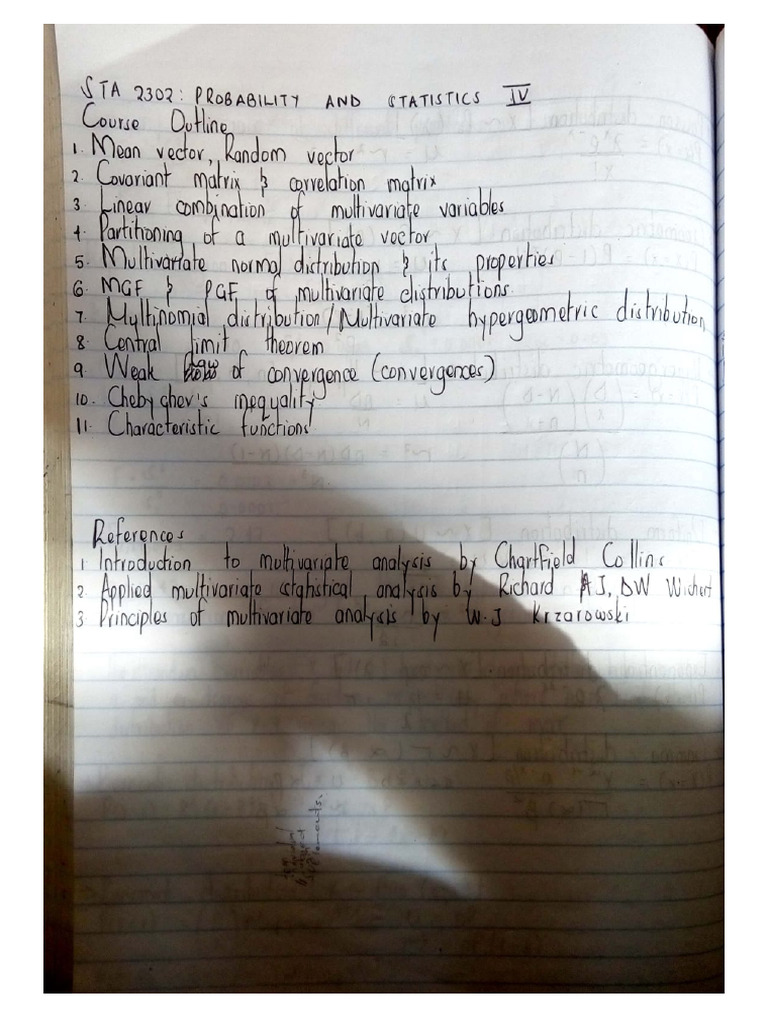 STA 2302: PROBABILITY AND STATISTICS IV
Course Outline
1. Mean vector, Random vector
2. Covariant matrix & correlation matrix
3. Linear combination of multivariate variables
4. Partitioning of a multivariate vector
5. Multivariate normal distribution & its properties
6. MGF & PGF of multivariate distributions
7. Multinomial distribution/Multivariate hypergeometric distribution
8. Central limit theorem
9. Weak of convergence (convergences)
10. Chebychev's inequality
11. Characteristic functions
References
1. Introduction to multivariate analysis by Chartfield Collins
2. Applied multivariate statistical analysis by Richard AJ, DW Wichert
3. Principles of multivariate analysis by W.J Krzarowski